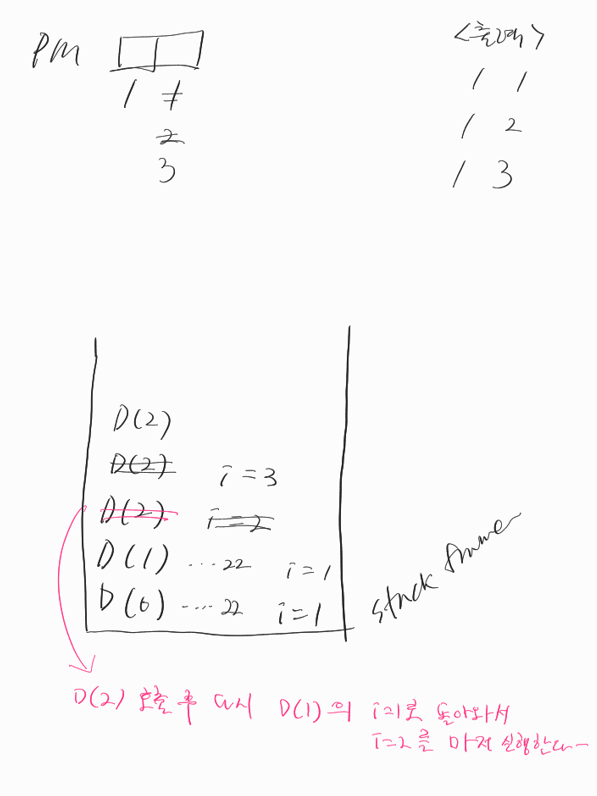 PM
1 1
2
3
<출력>
1 1
1 2
1 3
D(2)
D(2) i=3
D(2) i=2
D(1) ...22 i=1
D(0) ....22 i=1
stack frame
D(2) 호출 후 다시 D(1)의 i=1로 돌아와서
i=2를 마저 실행한다~